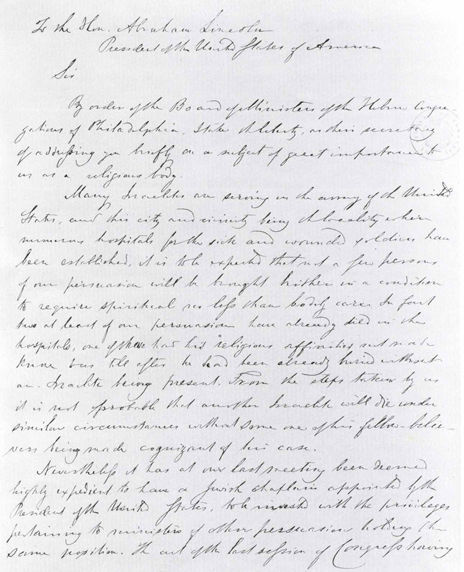 To the Hon. Abraham Lincoln
President of the United States of America
Sir
By order of the Board of Ministers of the Hebrew Congre-
gations of Philadelphia, I take the liberty, as their secretary
of addressing you briefly on a subject of great importance to
us as a religious body.
Many Israelites are serving in the army of the United
States, and this city and vicinity being the locality where
numerous hospitals for the sick and wounded soldiers have
been established, it is to be expected that not a few persons
of our persuasion will be brought hither in a condition
to require spiritual no less than bodily care. In fact
two at least of our persuasion have already died in the
hospitals, one of whom had his religious affinities not made
known till after he had been already buried without
an Israelite being present. From the steps taken by us
it is not probable that another Israelite will die under
similar circumstances without some one of his fellow-belie-
vers being made cognizant of his case.
Nevertheless it has at our last meeting been deemed
highly expedient to have a Jewish chaplain appointed by the
President of the United States, to be invested with the privileges
pertaining to ministers of other persuasion holding the
same position. The act of the last session of Congress having